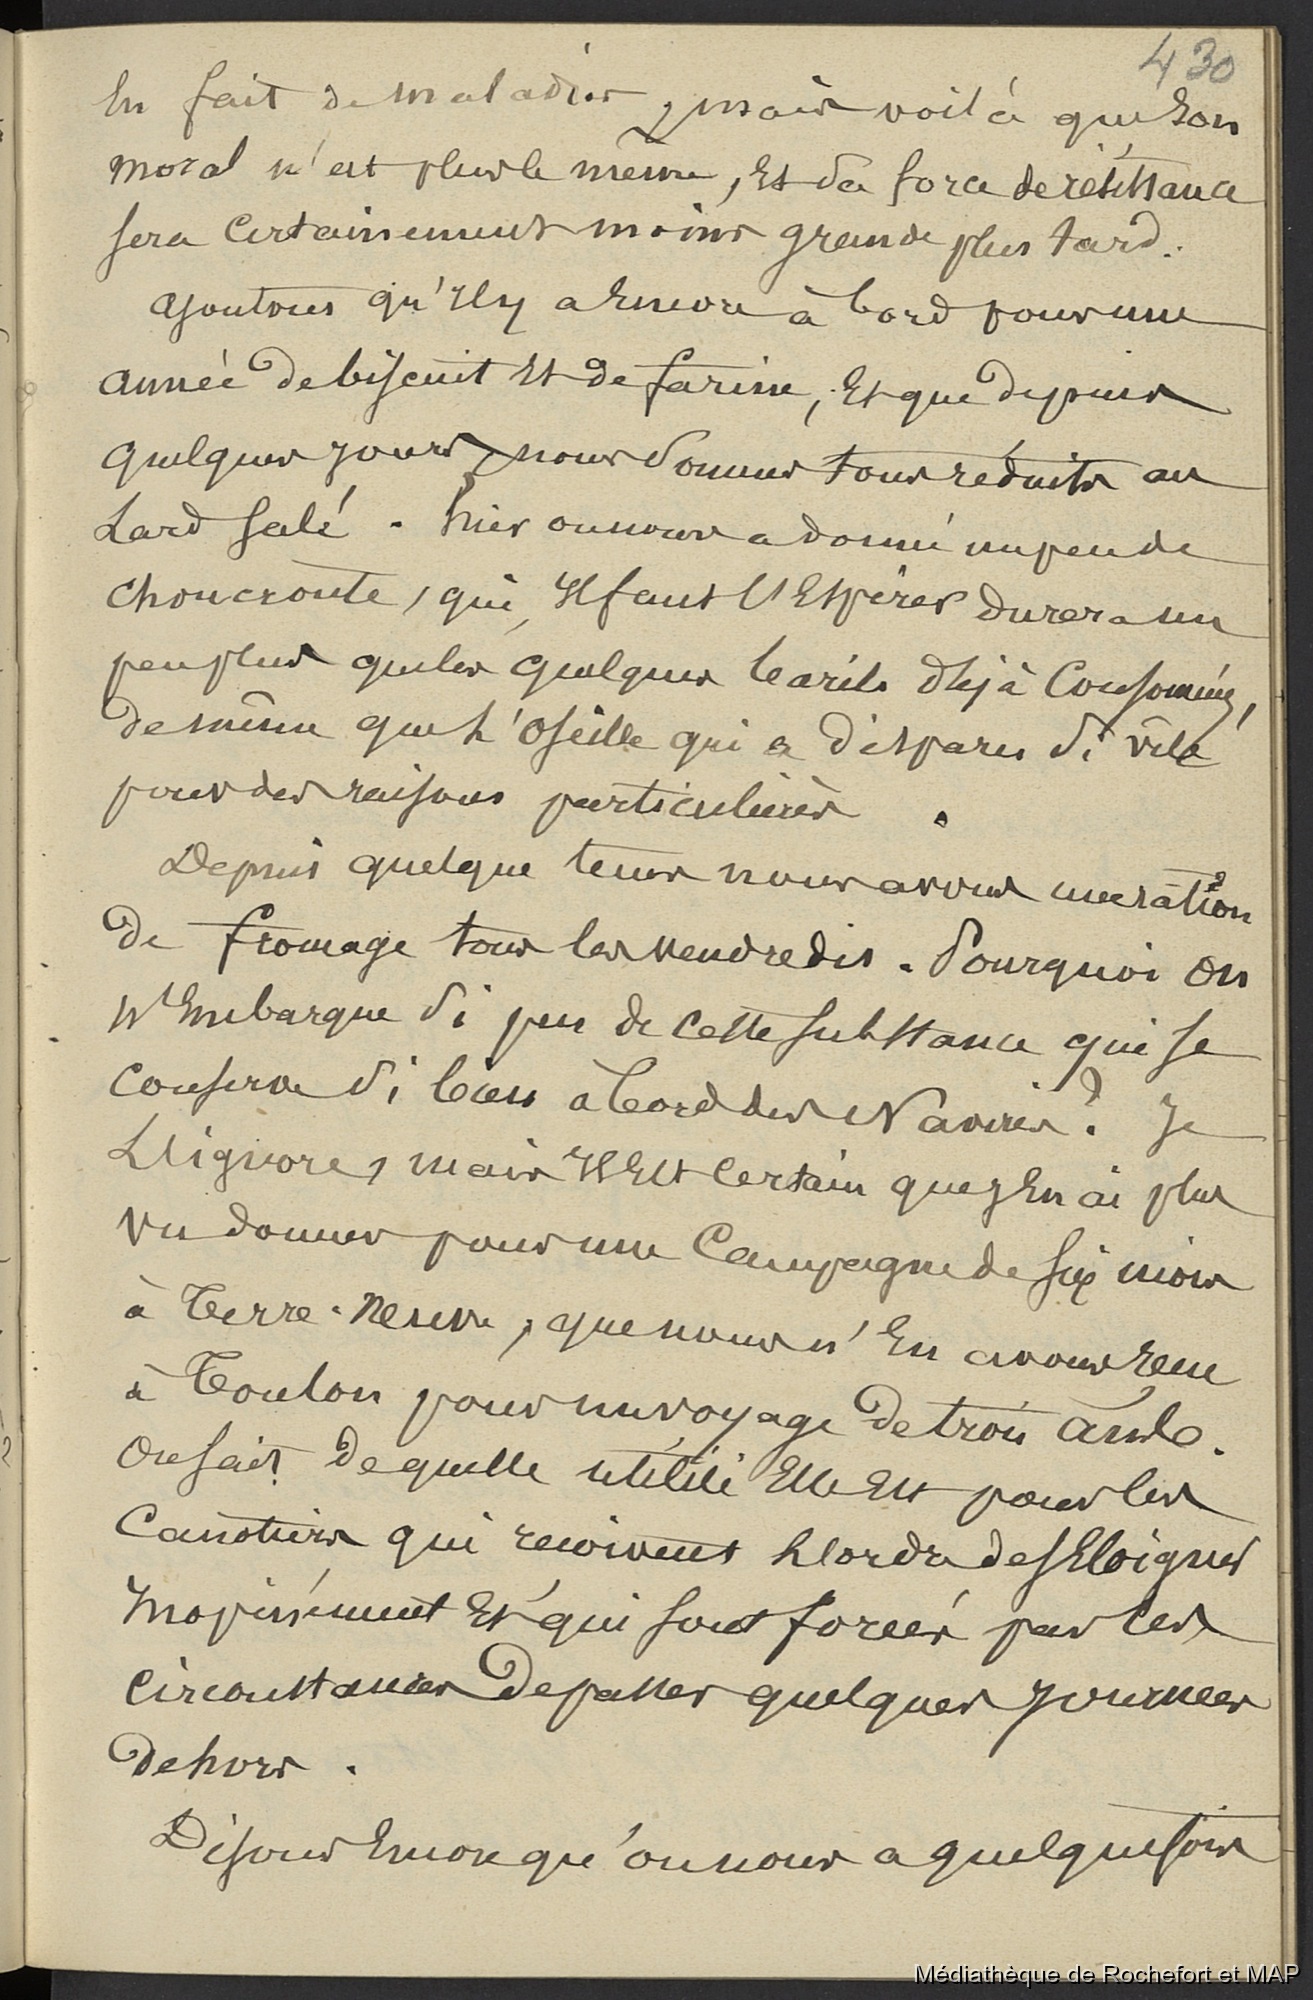 430
En fait de maladies, mais voilà que son
moral n'est plus le même, et sa force de résistance
sera certainement moins grande plus tard.
Ajoutons qu'il y a encore à bord pour une
année de biscuit et de farine, et que depuis
quelques jours, nous sommes tous réduits au
Lard salé. hier on nous a donné un peu de
choucroute, qui, il faut l'espérer durera un
peu plus que les quelques barils déjà consommés,
de même que l'oseille qui a disparu si vite
pour des raisons particulières.
Depuis quelque tems nous avons une ration
de fromage tous les vendredis. Pourquoi on
n'embarque si peu de cette substance qui se
conserve si bien à bord des Navires? Je
L'ignore, mais il est certain que j'en ai plus
vu donner pour une Campagne de six mois
à Terre-Neuve, que nous n'en avons reçu
à Toulon pour un voyage de trois ans.
On sait de quelle utilité elle est pour les
Canotiers qui reçoivent l'ordre de s'éloigner
inopinément et qui sont forcés par les
circonstances de passer quelques journées
dehors.
Disons encore qu'on nous a quelquefois
Médiathèque de Rochefort et MAP